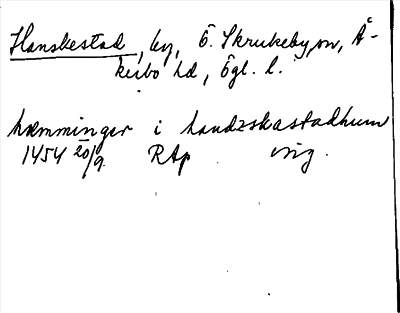 Hanskestad, by, Ö. Skrukeby sn, Å-
kerbo hd, Ögl. l.
hæmminger i handzskastadhum
1454 20/9 RAp orig.